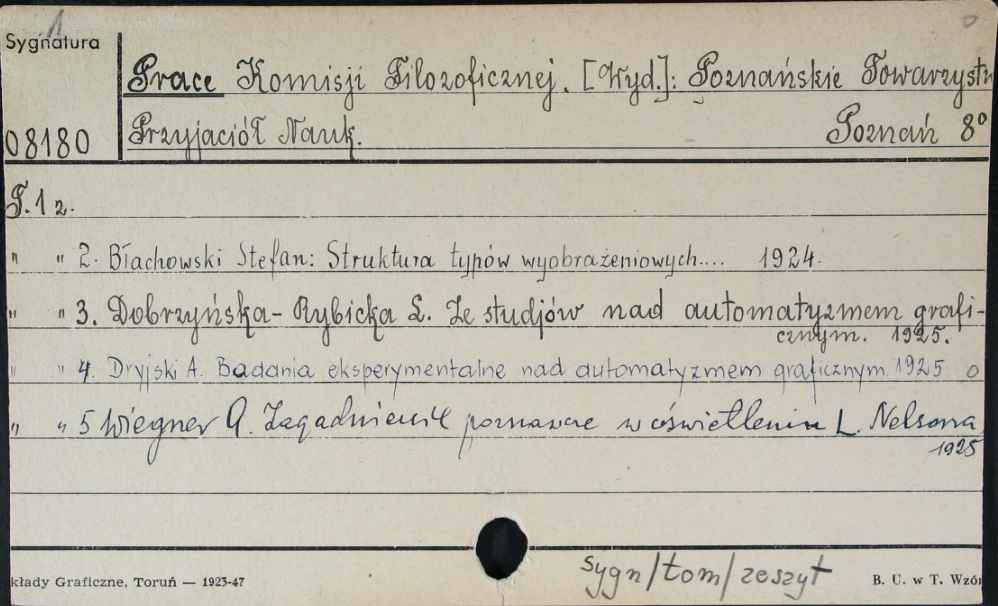 1
0
Sygnatura
Prace Komisji Filozoficznej. [Wyd.]: Poznańskie Towarzystw
08180 Przyjaciół Nauk. Poznań 8°
T. 1 z.
" " 2. Błachowski Stefan: Struktura typów wyobrażeniowych.... 1924.
" " 3. Dobrzyńska-Rybicka L. Ze studjów nad automatyzmem grafi-
cznym. 1925.
" " 4. Dryjski A. Badania eksperymentalne nad automatyzmem graficznym 1925 0
" " 5 Wiegner A. Zagadnienie poznawcze w oświetleniu L. Nelsona
1925
sygn/tom/zeszyt
kłady Graficzne, Toruń — 1925-47 B. U. w T. Wzór